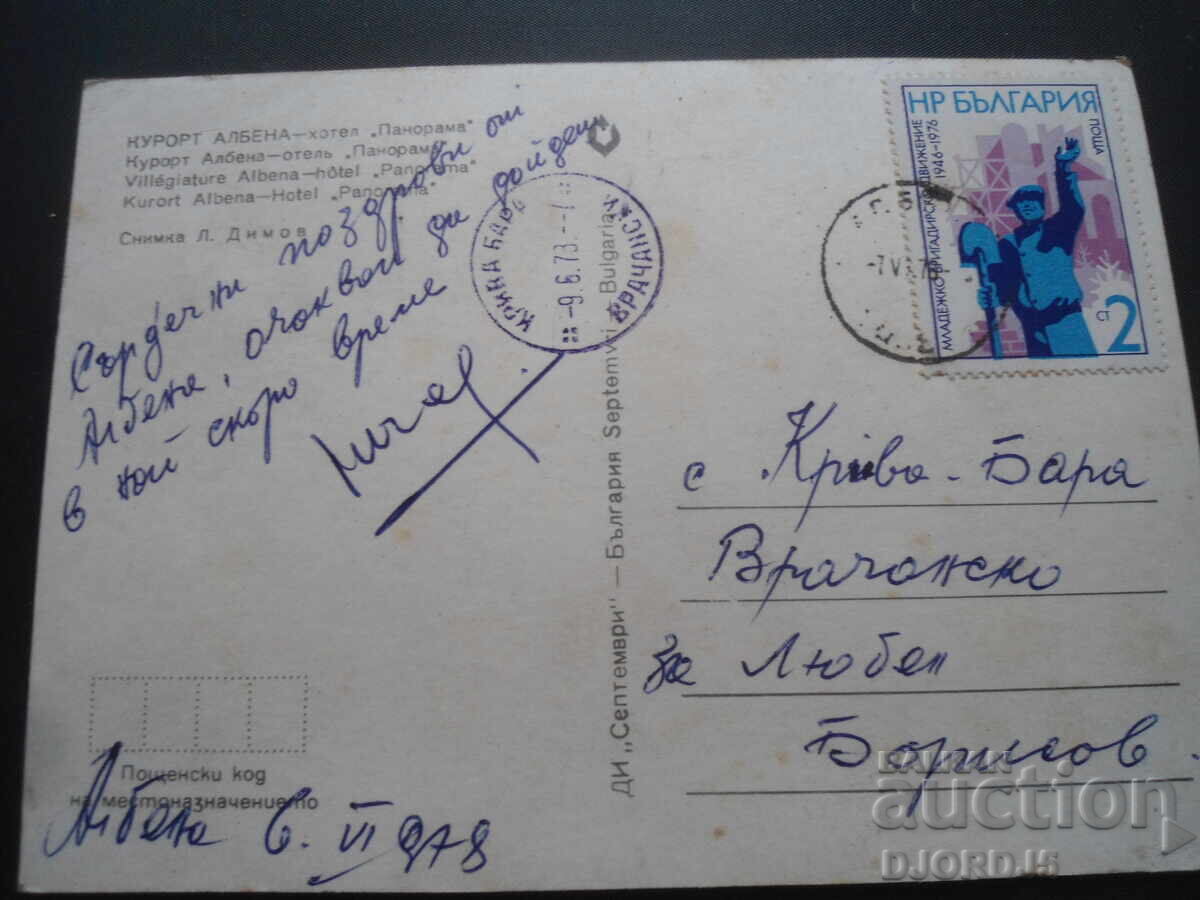 КУРОРТ АЛБЕНА—хотел „Панорама"
Курорт Албена—отель „Панорама"
Villégiature Albena—hôtel „Panorama"
Kurort Albena—Hotel „Panorama"
Снимка Л. Димов
Сърдечни поздрави от
Албена, очаквай да дойдем
в най скоро време
КРИВА БАРА
-9.6.78.-
ВРАЧАНСКИ
НР БЪЛГАРИЯ
ПОЩА
МЛАДЕЖКО БРИГАДИРСКО ДВИЖЕНИЕ
1946-1976
2 СТ
-7 VI 78
ДИ „Септември" — България Septemvri Bulgaria
с Крива-Бара
Врачанско
за Любен
Борисов.
Пощенски код
на местоназначението
Албена 6. VI 978
БАЛКАН
auction
DJORDJ5